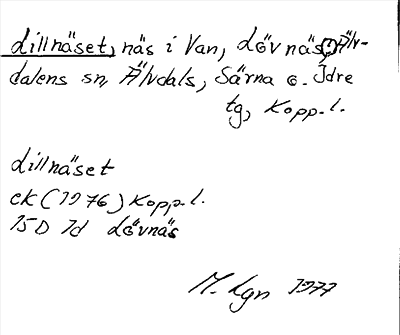 Lillnäset, näs i Van, Lövnäs, Älv-
dalens sn, Älvdals, Särna o. Idre
tg, Kopp. l.
Lillnäset
ek (1976) Kopp. l.
15D Id Lövnäs
M. Lgn 1977